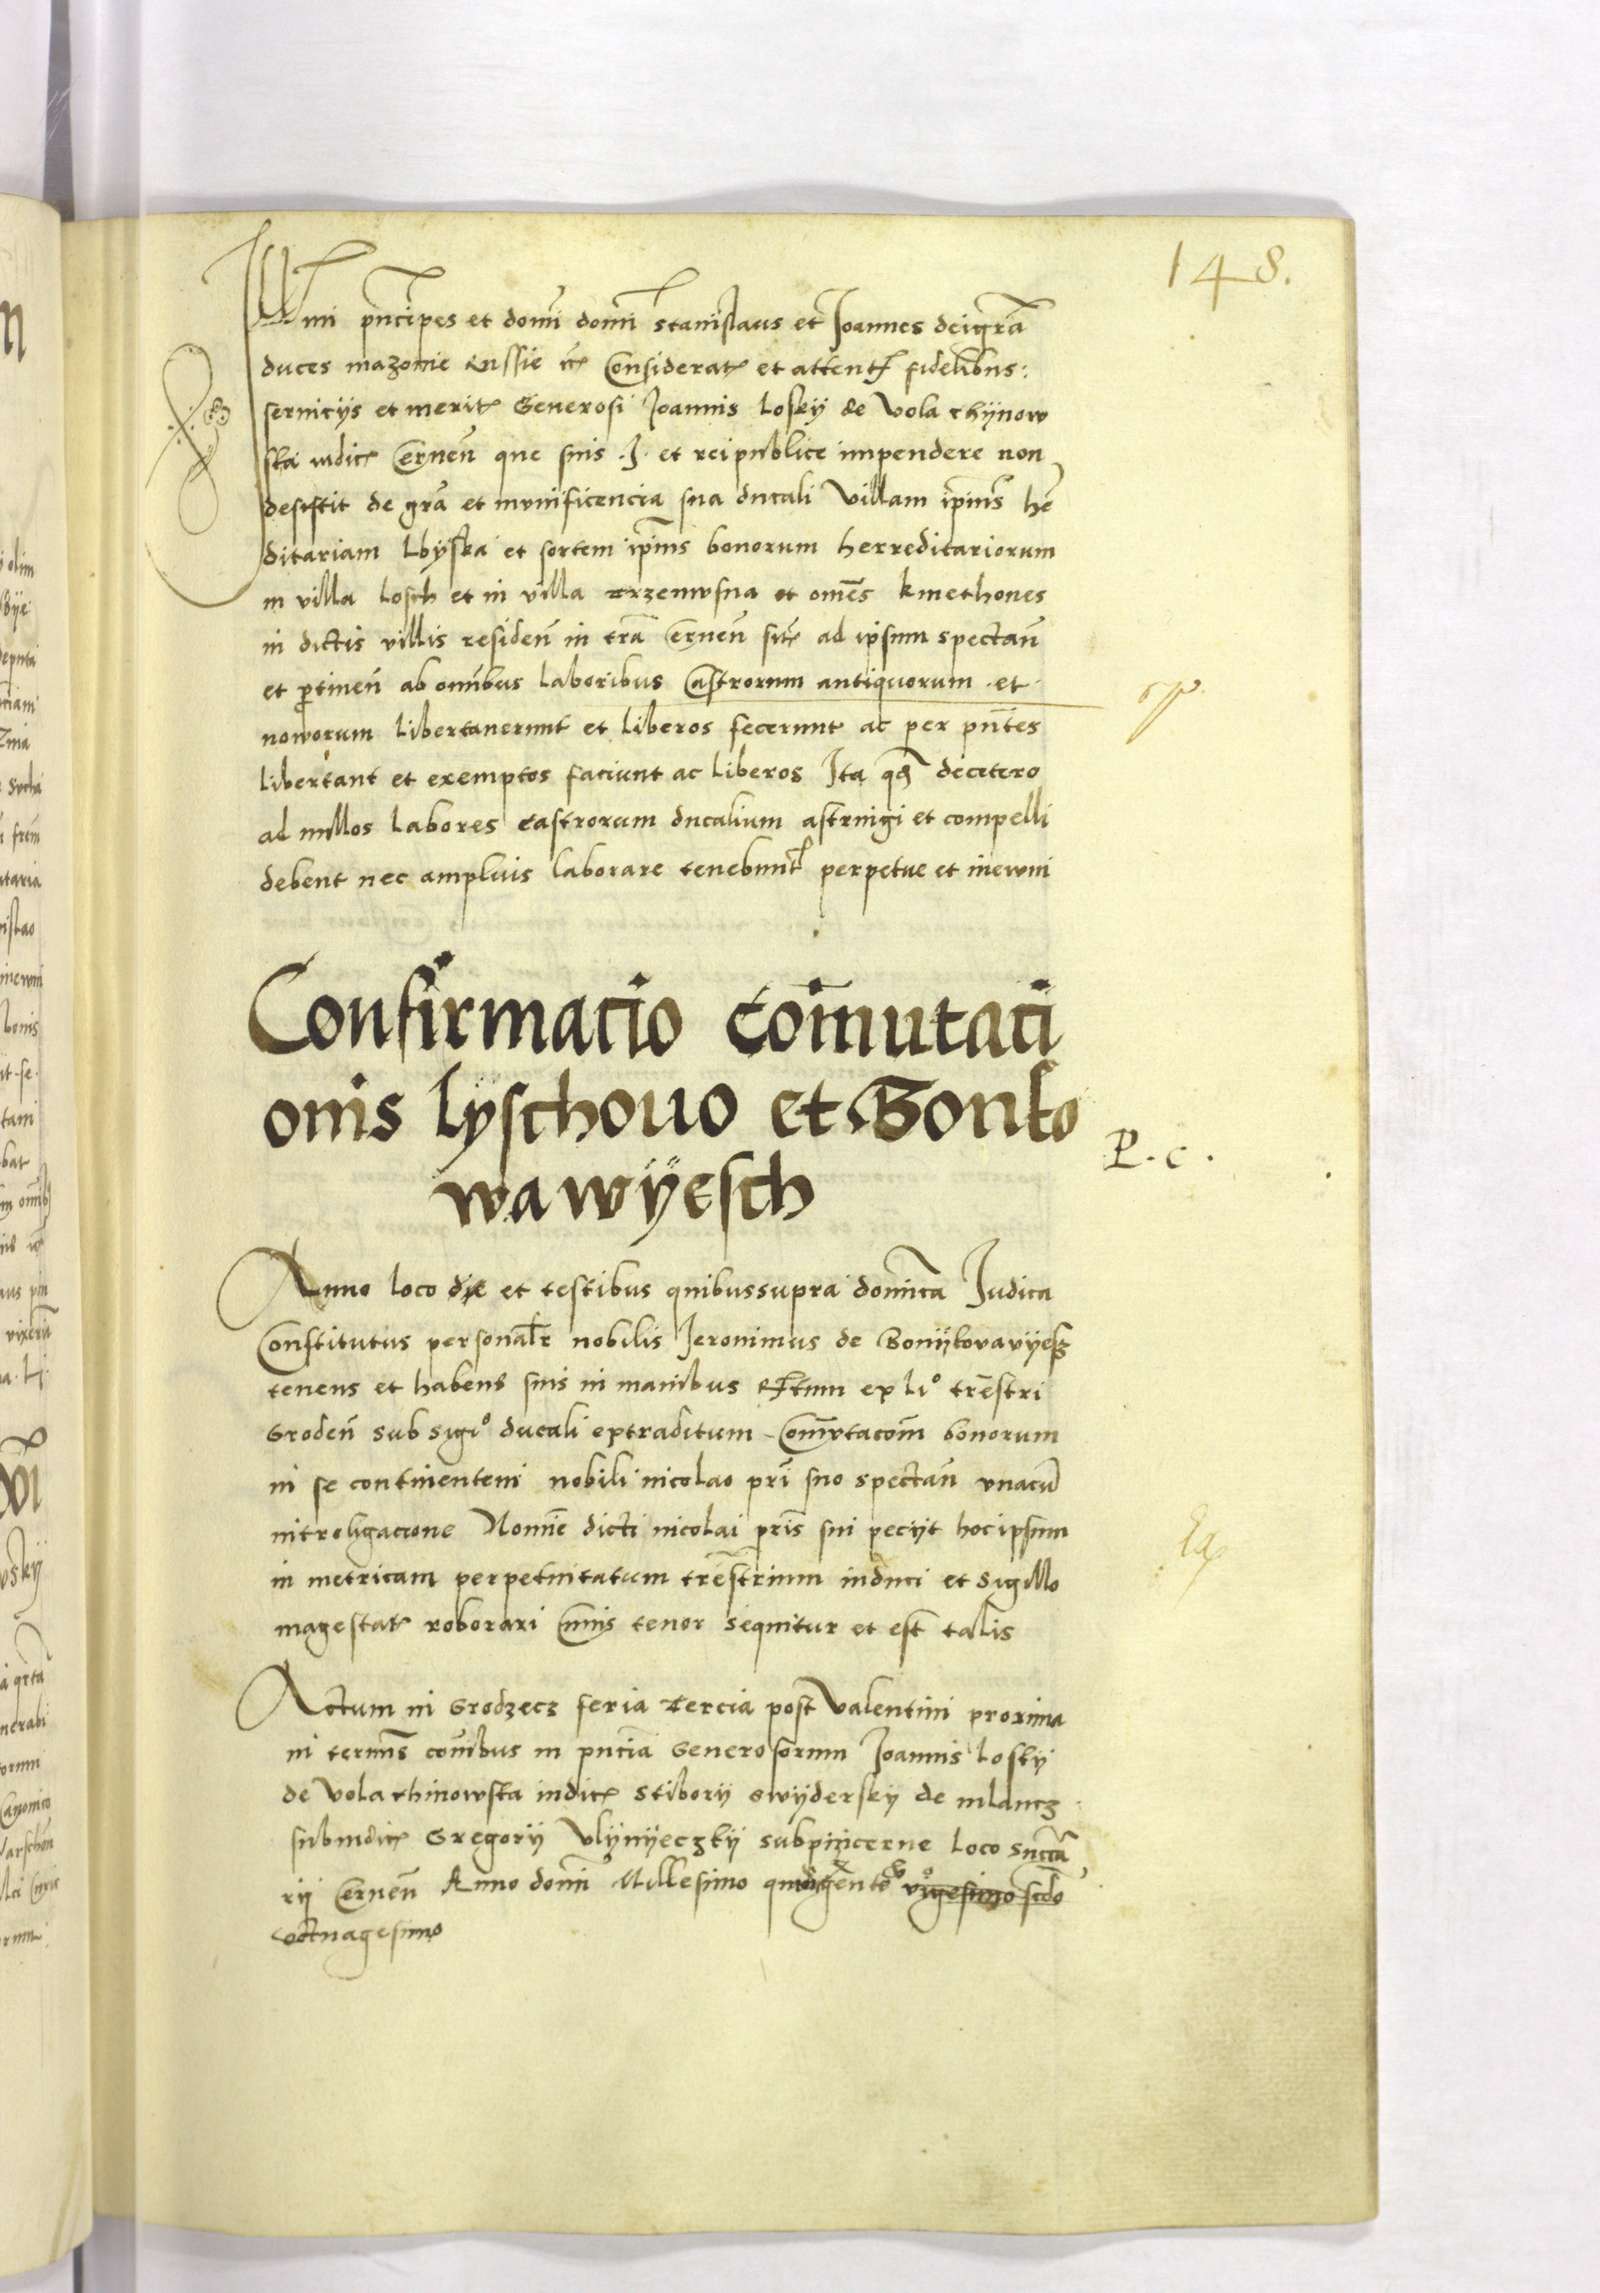 148.
Illmi pncipes et domi domi Stanislaus et Joannes dei gra
duces mazouie Russie etc Considerat et attent fidelibus
seruicijs et merit Generosi Joannis Losky de Vola chijnow
ska iudic Cernen que suis .I. et reipublice impendere non
desistit de gra et munificencia sua ducali Villam ipius he
ditariam Lbyska et sortem ipius bonorum herreditariorum
in villa Losch et in villa trzemvsna et omes kmethones
in dictis villis residen in tra Cernen sit ad ipsum spectan
et ptinen ab omibus laboribus Castrorum antiquorum et
noworum libertauerunt et liberos fecerunt ac per pntes
libertant et exemptos faciunt ac liberos Ita qd decetero
ad nullos labores castrorum ducalium astringi et compelli
debent nec amplius laborare tenebunt perpetue et inewm
Confirmacio Comutaci
onis lyschouo et Gonko
wawÿesch
P. c.
Anno loco die et testibus quibussupra domica Judica
Constitutus personalr nobilis Jeronimus de Gonijkovavijesz
tenens et habens suis in manibus Rtum ex lio trestri
Groden sub sigio ducali extraditum Comutacom bonorum
in se continentem nobili nicolao pri suo spectan vnacu
introligacione Nomie dicti nicolai pris sui peciyt hoc ipsum
in metricam perpetuitatum trestrium induci et sigillo
magestat roborari Cuius tenor sequitur et est talis
Actum in Grodzecz feria tercia post Valentini proxima
in termis comibus in pncia Generosorum Joannis Losky
de Vola chinowska iudic Stiborij Swijdersky de mlancz
subiudic Gregorij Vlijnijeczkij subpincerne loco Succa
rij Cernen Anno domi Millesimo quigento vigesimo scdo
octuagesimo